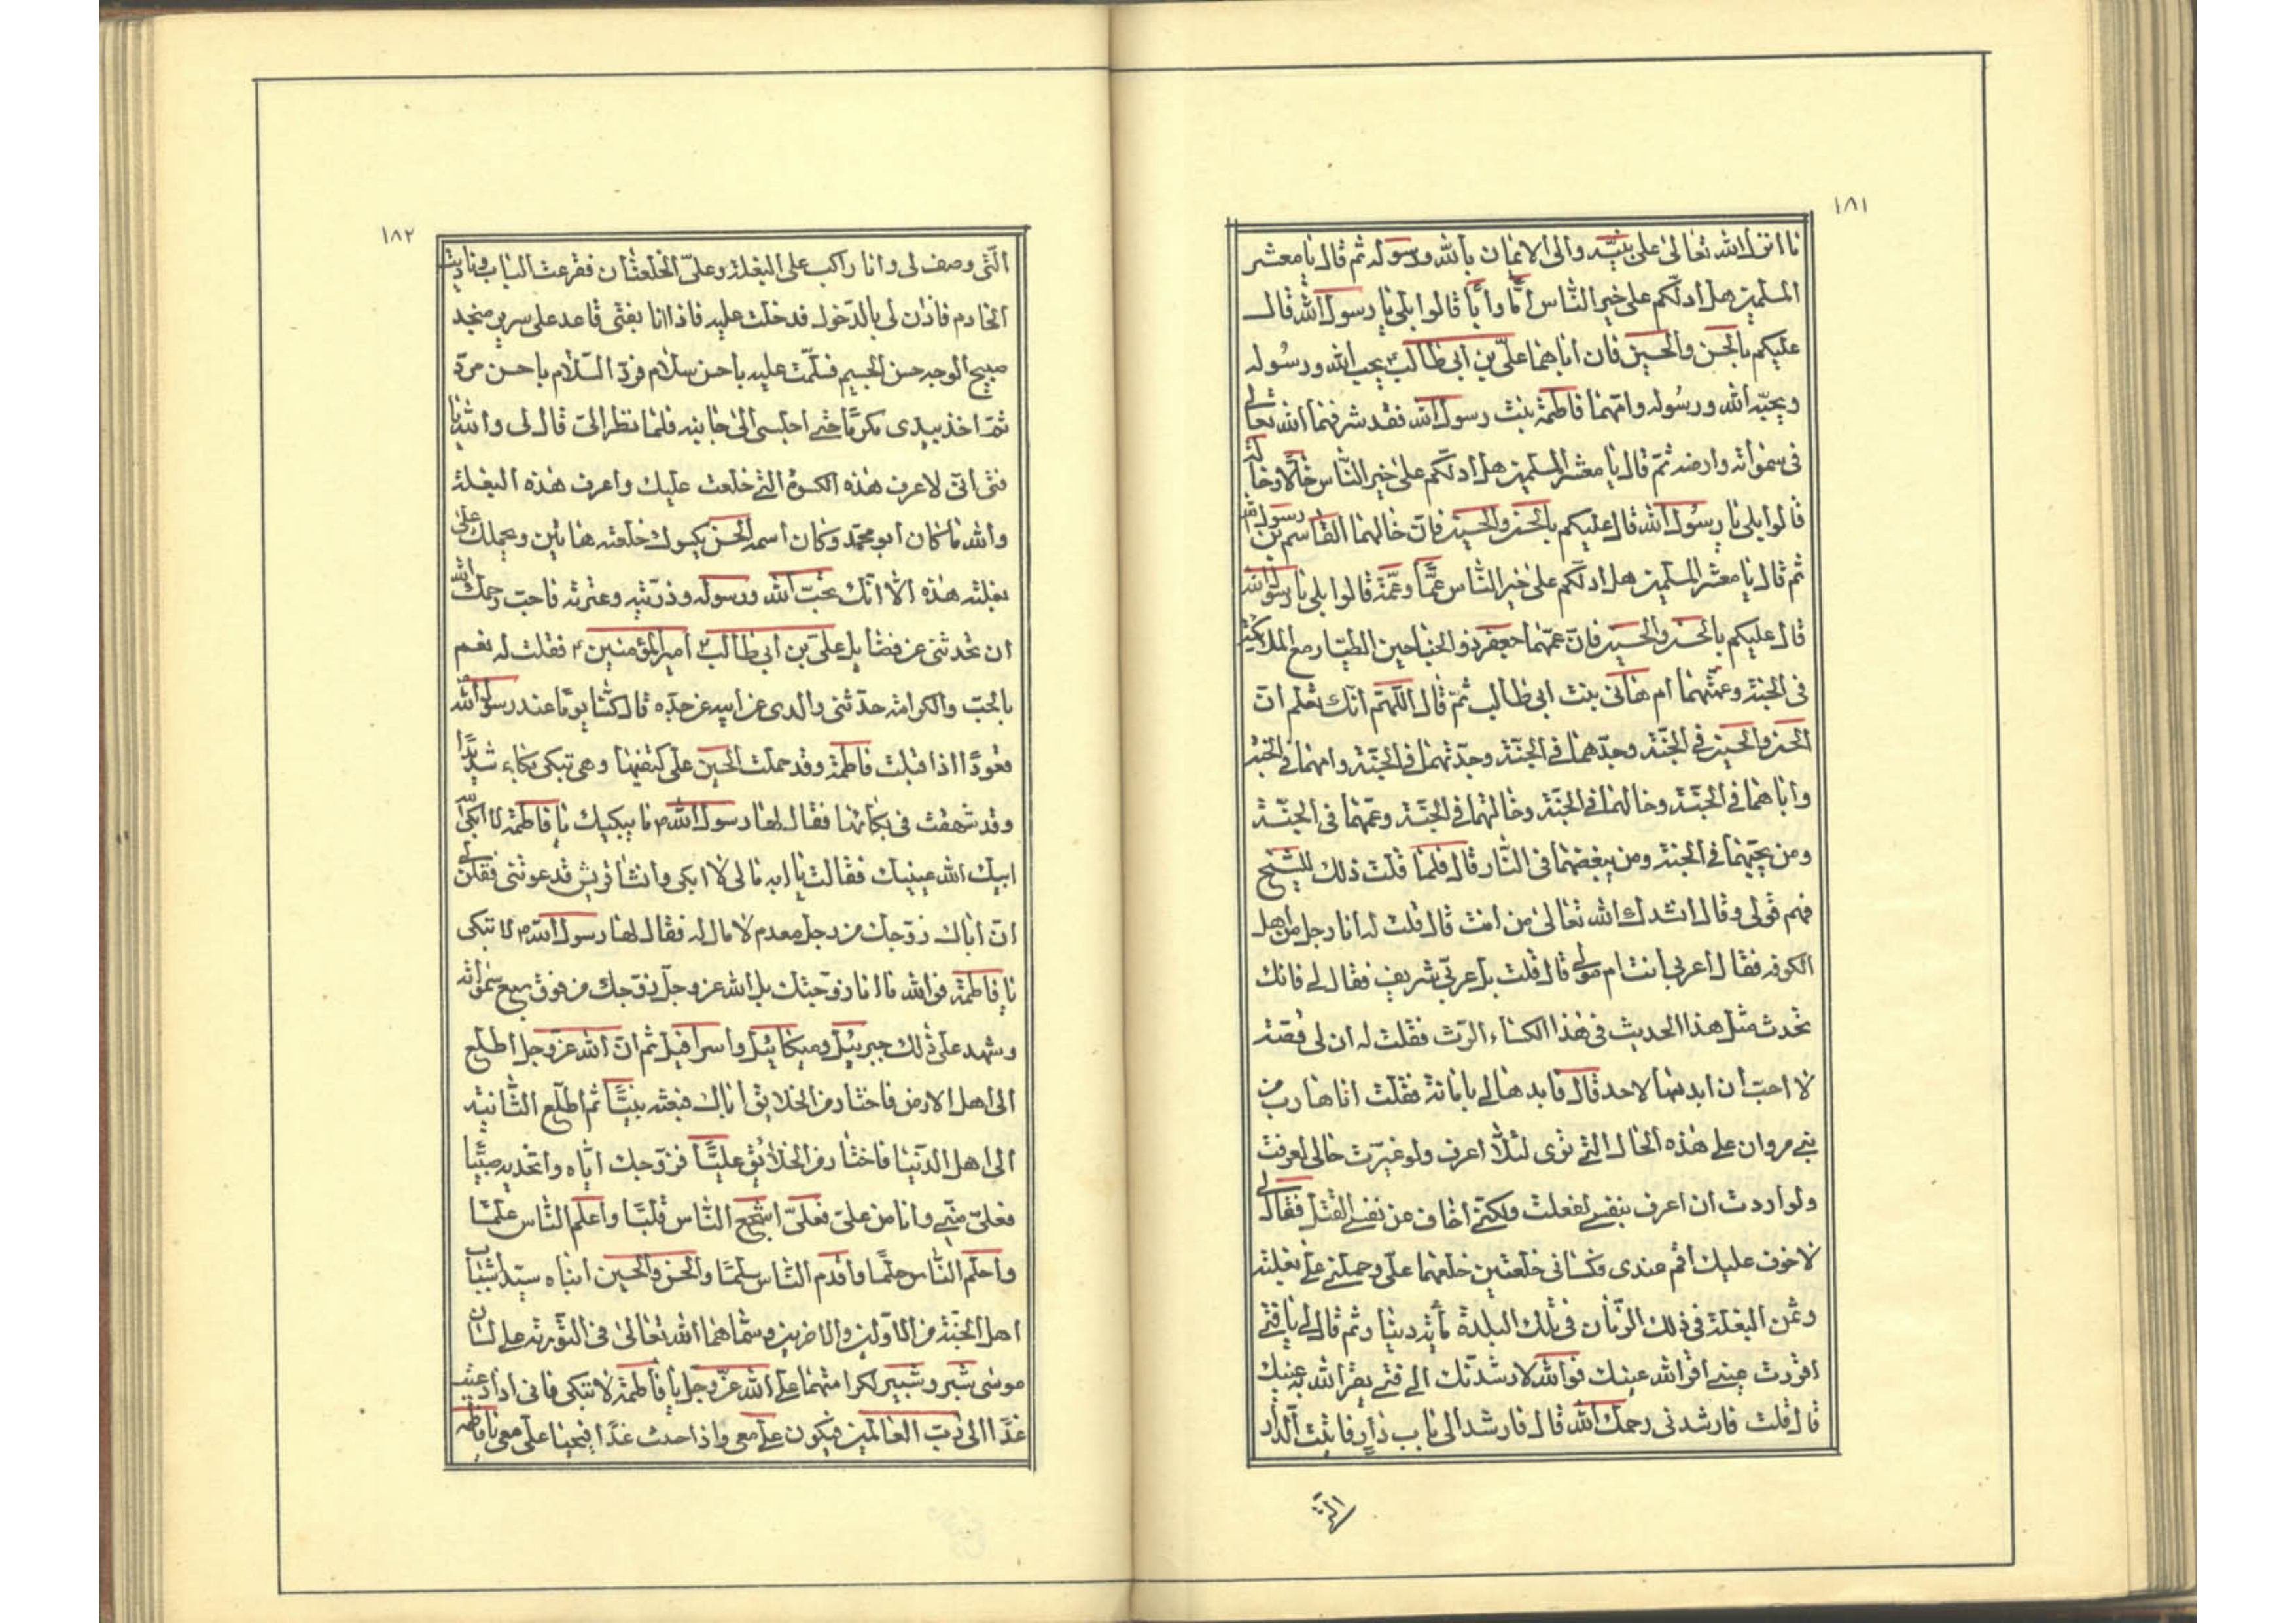 ١٨١
ما انزل الله تعالى على نبيّه والى الايمان بالله ورسوله ثم قال يا معشر
المسلمين هل ادلّكم على خير الناس امّا وابا قالوا بلى يا رسول الله قال
عليكم بالحسن والحسين فان اباهما علىّ بن ابى طالب يحب الله ورسوله
ويحبّه الله ورسوله وامّهما فاطمة بنت رسول الله فقد شرفهما الله تعالى
فى سمواته وارضه ثمّ قال يا معشر المسلمين هل ادلّكم على خير النّاس خالًا وخالة
قالوا بلى يا رسول الله قال عليكم بالحسن والحسين فانّ خالهما القاسم بن رسول الله
ثم قال يا معشر المسلمين هل ادلّكم على خير النّاس عمًّا وعمّة قالوا بلى يا رسول الله
قال عليكم بالحسن والحسين فانّ عمّهما جعفر ذو الجناحين الطيّار مع الملائكة
فى الجنة وعمّتهما ام هانى بنت ابى طالب ثمّ قال اللّهمّ انّك تعلم انّ
الحسن والحسين فى الجنّة وجدّهما فى الجنّة وجدّتهما فى الجنّة وامهما فى الجنّة
واباهما فى الجنّة وخالهما فى الجنّة وخالتهما فى الجنّة وعمّهما فى الجنّة
ومن يحبّهما فى الجنة ومن يبغضهما فى النّار قال فلمّا قلت ذلك للشّيخ
فهم قولى وقال انشدك الله تعالى من انت قال قلت له انا رجل من اهل
الكوفه فقال اعربى انت ام مولى قال قلت بل عربّى شريف فقال لى فانك
تحدث مثل هذا الحديث فى هذا الكساء الرّث فقلت له ان لى قصّة
لا احبّ ان ابديها لاحد قال فابدها لى بامانة فقلت انا هارب من
بنى مروان على هذه الحال التى ترى لئلّا اعرف ولو غيّرت حالى لعرفت
ولو اردت ان اعرف بنفسى لفعلت ولكنّى اخاف عن نفسى القتل فقال لى
لا خوف عليك اقم عندى فكسانى خلعتين خلعهما علىّ وحملنى على بغلته
وثمن البغلة فى ذلك الزّمان فى تلك البلدة مأئة دينار ثم قال لى يا فتى
اقررت عينى اقر الله عينك فوالله لارشدنّك الى فتى يقر الله به عينك
قال قلت فارشدنى رحمك الله قال فارشد الى باب دار فاتيت الدّار
الّتى
١٨٢
الّتى وصف لى وانا راكب على البغلة وعلىّ الخلعتان فقرعت الباب وناديت
الخادم فاذن لى بالدّخول فدخلت عليه فاذا انا بفتى قاعد على سرير منجد
صبيح الوجه حسن الجسيم فسلّمت عليه باحسن سلام فردّ السّلام باحسن مردّ
ثمّ اخذ بيدى مكرمًا حتى اجلسى الى جانبه فلمّا نظر الىّ قال لى والله يا
فتى انّى لاعرف هذه الكسوة التى خلعت عليك واعرف هذه البغلة
والله ما كان ابو محمّد وكان اسمه الحسن يكسوك خلعته هاتين ويحملك على
بغلته هذه الّا انّك تحبّ الله ورسوله وذرّيّته وعترته فاحبّ رحمك الله
ان تحدثنى عن فضايل علىّ بن ابى طالب امير المؤمنين فقلت له نعم
بالحبّ والكرامة حدّثنى والدى عن ابيه عن جدّه قال كنّا يومًا عند رسول الله
قعودًا اذا قبلت فاطمة وقد حملت الحسين على كتفيها وهى تبكى بكاء شديدًا
وقد شهقت فى بكائها فقال لها رسول الله ما يبكيك يا فاطمة لا ابكى
ابيك الله عينيك فقالت يا ابه مالى لا ابكى ونساء قريش قد عيرتنى فقلن لى
انّ اباك زوّجك من رجل معدم لا مال له فقال لها رسول الله لا تبكى
يا فاطمة فوالله ما انا زوّجتك بل الله عز وجلّ زوّجك من فوق سبع سمواته
وشهد على ذلك جبرئيل وميكائيل واسرافيل ثم انّ الله عزّ وجلّ اطّلع
الى اهل الارض فاختار من الخلايق اباك فبعثه نبيًّا ثم اطّلع الثّانية
الى اهل الدّنيا فاختار من الخلائق عليًّا فزوّجك ايّاه واتخذه وصيًّا
فعلىّ منّى وانا من علىّ فعلىّ اشجع النّاس قلبًا واعلم النّاس علمًا
واحلم النّاس حلمًا واقدم النّاس سلمًا والحسن والحسين ابناه سيّدا شباب
اهل الجنّة من الاوّلين والاخرين وسمّاهما الله تعالى فى التّورية على لسان
موسى شبّر وشبير لكرامتهما على الله عزّ وجلّ يا فاطمة لا تبكى فانى اذا دعيت
غدًا الى ربّ العالمين فيكون علىّ معى واذا حدث غدًا فيحينا علىّ معى يا فاطمه